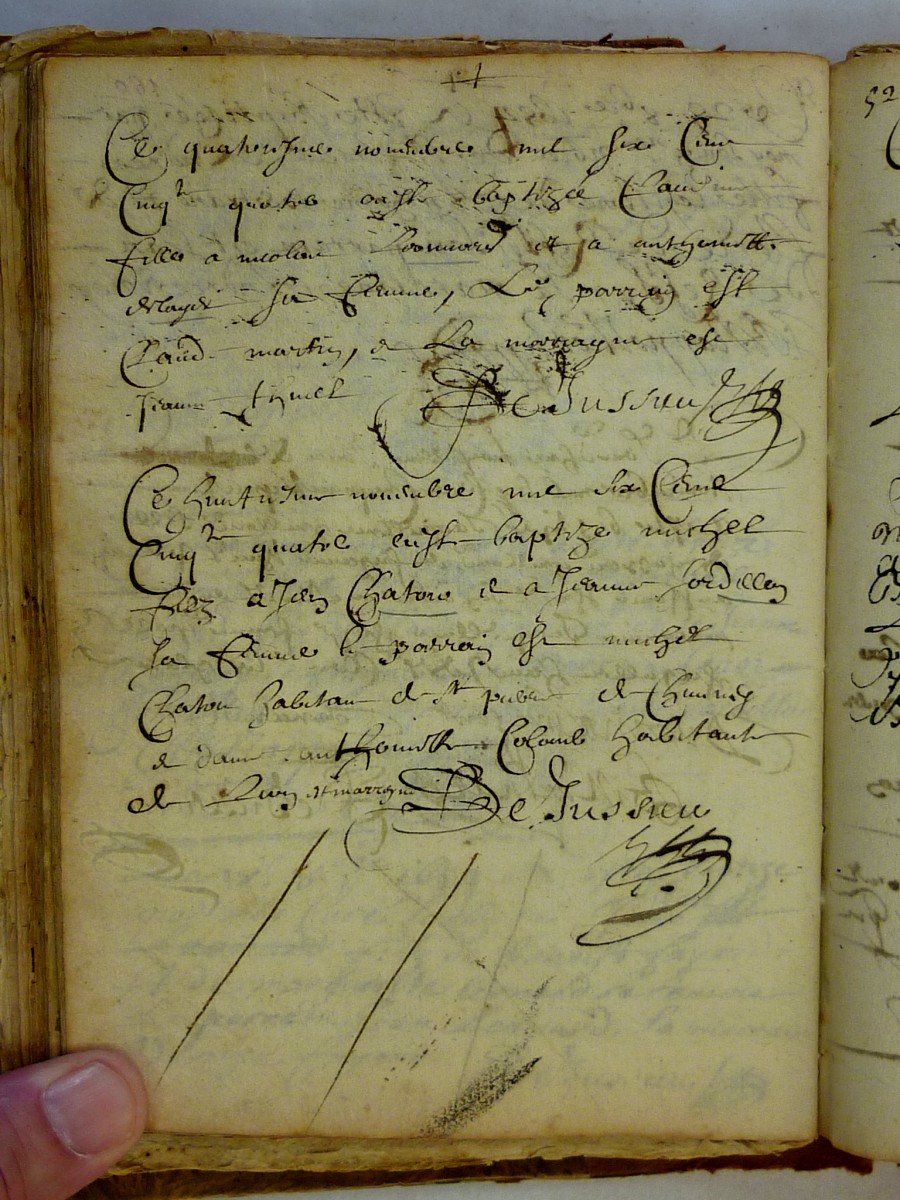 Ce quatorsme novembre mil six Cens
Cinq.te quatre aest baptizée Claudine
fille a nicolas Leonnard et a anthoinette
delaye sa femme, Le parrain est
Claude martin, & La marragne est
Jeanne
De Jussieu
Ce huictiesme novembre mil six Cens
Cinq.te quatre aest baptize michel
filz a Jean Chatou & a Jeanne
sa femme le parrain est michel
Chatou habitant de st pierre de
& dame anthoinette Colomb habitante
de Lion st marragne De Jussieu
52